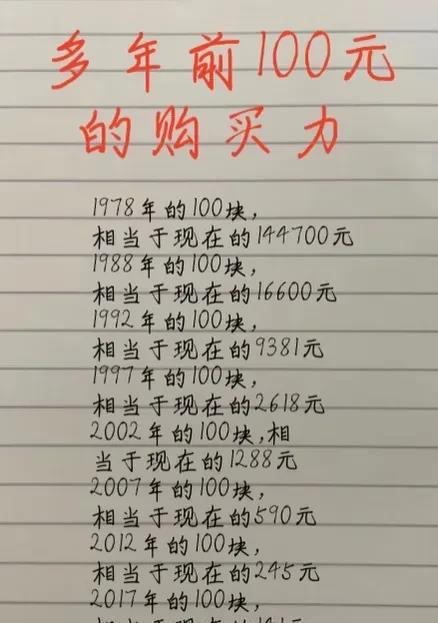 多年前100元
的购买力
1978年的100块,
相当于现在的144700元
1988年的100块,
相当于现在的16600元
1992年的100块,
相当于现在的9381元
1997年的100块,
相当于现在的2618元
2002年的100块,相
当于现在的1288元
2007年的100块,
相当于现在的590元
2012年的100块,
相当于现在的245元
2017年的100块,